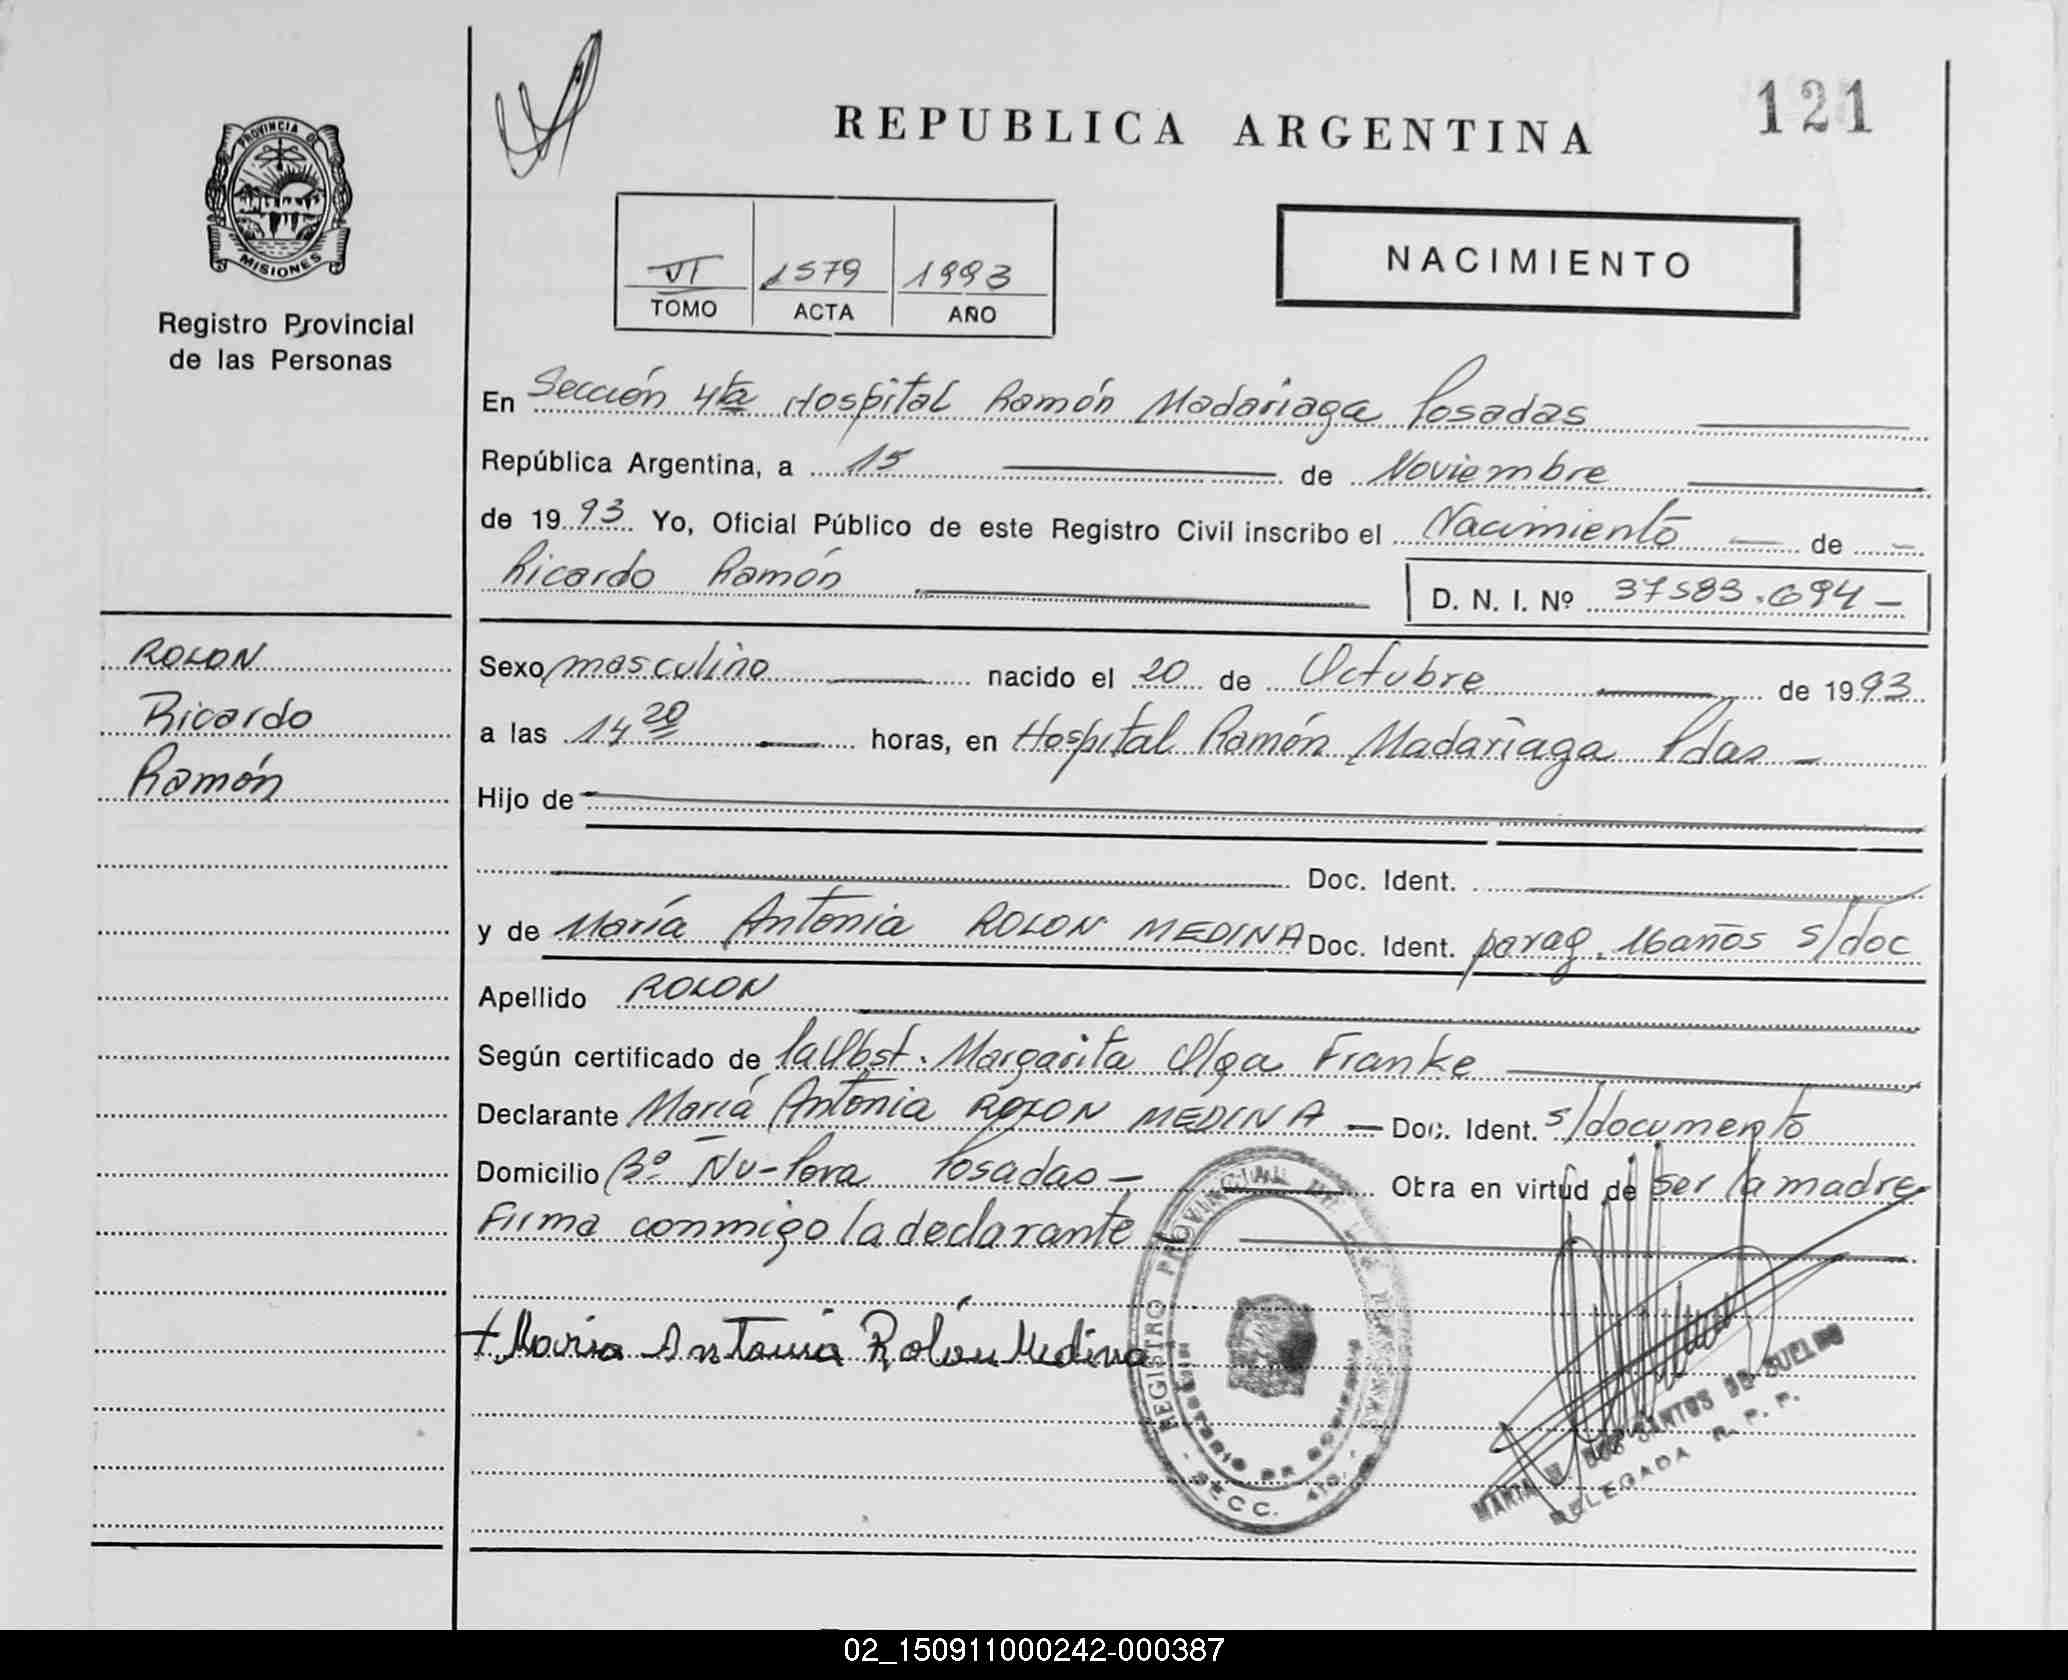 PROVINCIA DE
MISIONES
Registro Provincial
de las Personas
REPUBLICA ARGENTINA
121
VI 1579 1993
TOMO ACTA AÑO
NACIMIENTO
En Sección 4ta Hospital Ramón Madariaga Posadas
República Argentina, a 15 de Noviembre
de 1993 Yo, Oficial Público de este Registro Civil inscribo el Nacimiento de
Ricardo Ramón D. N. I. Nº 37583.694
ROLON
Ricardo
Ramón
Sexo masculino nacido el 20 de Octubre de 1993
a las 14 20 horas, en Hospital Ramón Madariaga Pdas
Hijo de
Doc. Ident.
y de María Antonia ROLON MEDINA Doc. Ident. parag. 16 años s/doc
Apellido ROLON
Según certificado de la Obst. Margarita Olga Franke
Declarante María Antonia ROLON MEDINA Doc. Ident. s/documento
Domicilio Bº Ñu-Pora Posadas Obra en virtud de ser la madre
Firma conmigo la declarante
Maria Antonia Rolón Medina
REGISTRO PROVINCIAL DE LAS PERSONAS
MINISTERIO DE GOBIERNO
SECC. 4ta.
MARIA DOS SANTOS DE SUELDO
DELEGADA R. P. P.
02_150911000242-000387